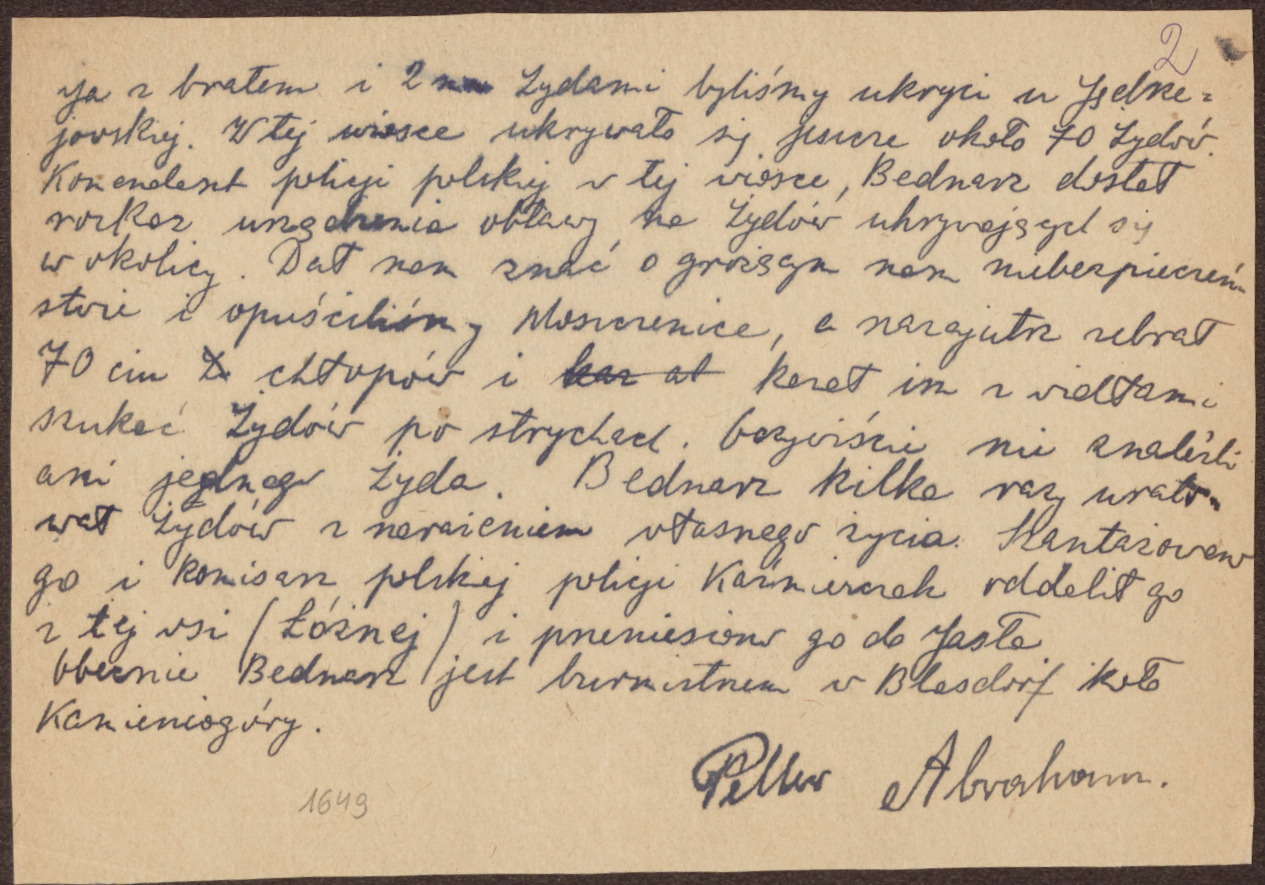 2
Ja z bratem i 2 ma Żydami byliśmy ukryci u Jędrze-
jowskiej. W tej wiosce ukrywało się jeszcze około 70 Żydów.
Komendant policji polskiej w tej wiosce, Bednarz dostał
rozkaz urządzenia obławy na Żydów ukrywających się
w okolicy. Dał nam znać o grożącym nam niebezpieczeń-
stwie i opuściliśmy Moszczenice, a nazajutrz zebrał
70 ciu Ż chłopów i kazał kazał im z widłami
szukać Żydów po strychach. Oczywiście nie znaleźli
ani jednego Żyda. Bednarz kilka razy urato-
wał Żydów z narażeniem własnego życia. Szantażowano
go i komisarz polskiej policji Kaźmierczak oddalił go
z tej wsi (Łóżnej) i przeniesiono go do Jasła
Obecnie Bednarz jest burmistrzem w Blasdorf koło
Kamieniogóry.
Peller Abraham.
1649